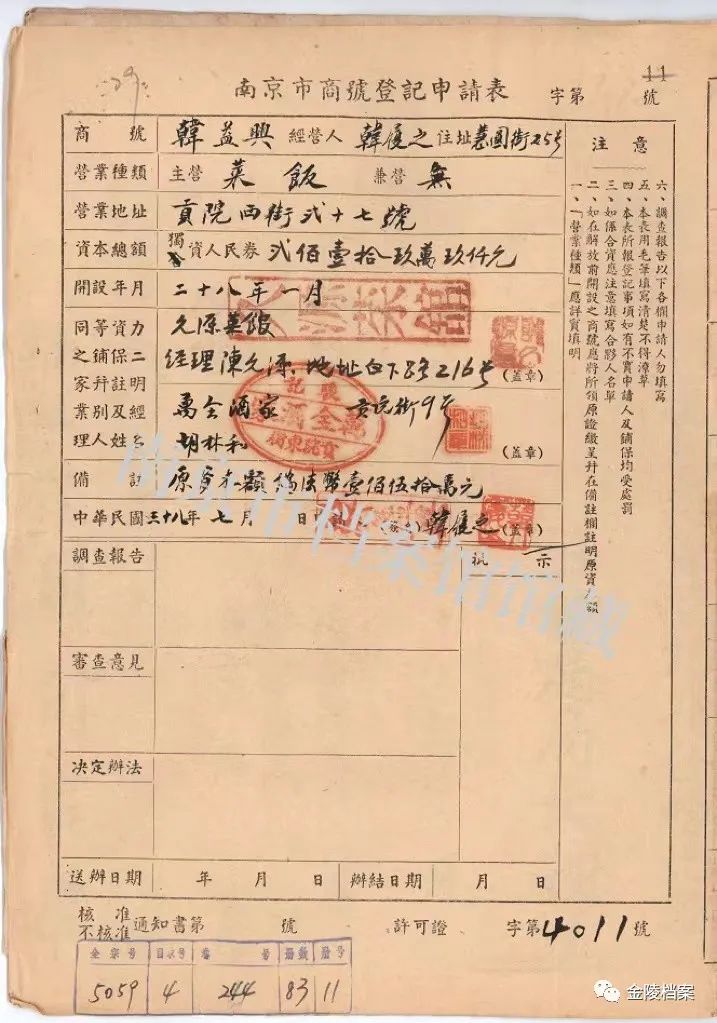 南京市商號登記申請表 字第 11 號
商號 韓益興 經營人 韓履之 住址 慧園街25号
營業種類 主營 菜飯 兼營 無
營業地址 貢院西街弍十七號
資本總額 獨資人民券 弍佰壹拾玖萬玖仟元
開設年月 二十八年一月
同等資力之鋪保二家幷註明業別及經理人姓名
久源菜館
經理陳久源 地址白下路216号 (蓋章)
萬全酒家 貢院街9号
胡林和 (蓋章)
備註 原資本額 偽法幣壹佰伍拾萬元
中華民國三十八年七月 日 韓履之 (蓋章)
調查報告 批示
審查意見
決定辦法
送辦日期 年 月 日 辦結日期 月 日
注意
一、「營業種類」應詳實填明
二、如在解放前開設之商號應將所領原證繳呈幷在備註欄註明原資本額
三、如係合資應注意填寫合夥人名單
四、本表所報登記事項如有不實申請人及鋪保均受處罰
五、本表用毛筆填寫清楚不得潦草
六、調查報告以下各欄申請人勿填寫
核准
不核准 通知書第 號 許可證 字第4011號
全宗号 目录号 卷号 册数 册号
5059 4 244 83 11
南京市档案馆馆藏
金陵档案